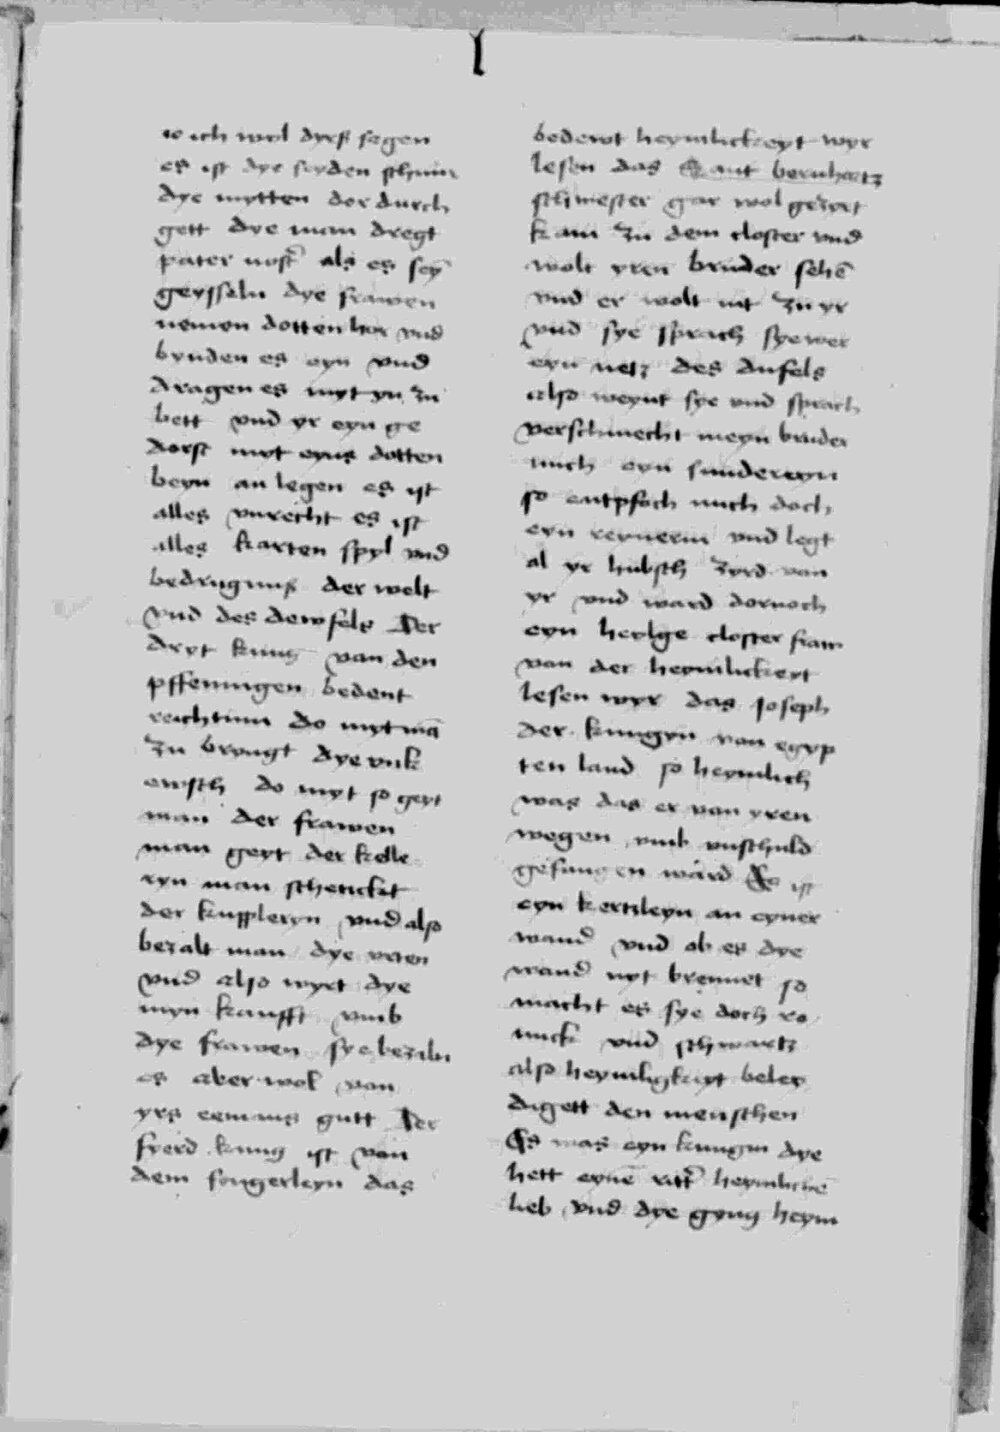 io ich wil dyrß sagen
es ist dye seyden schnur
dye mytten dor durch
gett dye man dregt
pater nostr als es sey
geysseln dye frawen
nemen dotten hor vnd
bynden es eyn vnd
dragen es myt yn zu
bett vnd yr eyn ge
dorst myt eyns dotten
beyn an legen es ist
alles vnrecht es ist
alles karten spyl vnd
bedrugnuß der welt
vnd des dewfels Der
dryt kung van den
pffenningen bedeut
reichtum do myt mā
zu brengt dye vnk
ewsch do myt so geyt
man der frawen
man geyt der kelle
ryn man schenckt
der kuppleryn vnd also
bezalt man dye vrten
vnd also wyrt dye
myn kaufft vmb
dye frawen sye bezaln
es aber wol van
yrs eemans gutt Der
fyerd kung ist van
dem fingerleyn das
bedewt heymlickeyt wyr
lesen das Sant bernhartz
schwester gar wol gezyrt
kam zu dem closter vnd
wolt yren bruder sehē
vnd er wolt nit zu yr
vnd sye sprach sye wer
eyn netz des dufels
also weynt sye vnd sprach
verschmecht meyn bruder
mich eyn sunderryn
so entpfoch mich doch
eyn reynerin vnd legt
al yr hubsch zyrd van
yr vnd ward dornoch
eyn heylge closter fraw
van der heymlickeyt
lesen wyr das Joseph
der kungyn van egyp
ten land so heymlich
was das er van yren
wegen vmb vnschuld
gefangen ward Es ist
eyn kertzleyn an eyner
wand vnd ab es dye
wand nyt brennet so
macht es sye doch ro
mick vnd schwartz
also heymligkeyt beley
digett den menschen
Es was eyn kungin dye
hett eynē rittr heymlichē
lieb vnd dye gyng heym